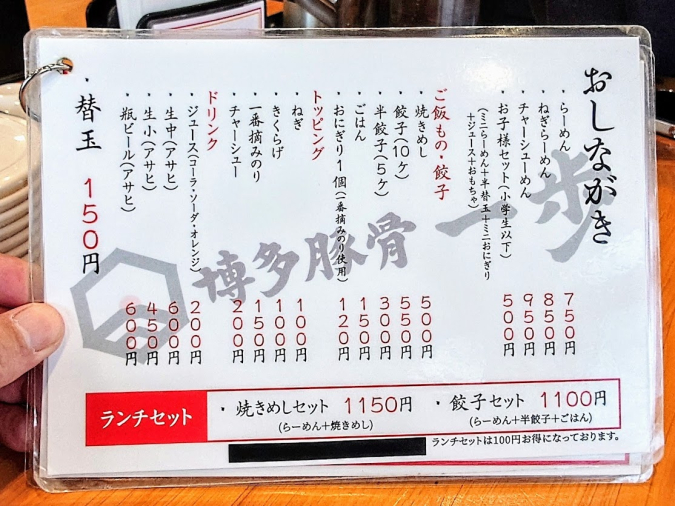 おしながき
・らーめん 750円
・ねぎらーめん 850円
・チャーシューめん 950円
・お子様セット(小学生以下) 500円
(ミニらーめん+半替玉+ミニおにぎり
+ジュース+おもちゃ)
ご飯もの・餃子
・焼きめし 500円
・餃子(10ヶ) 550円
・半餃子(5ヶ) 300円
・ごはん 150円
・おにぎり1個(一番摘みのり使用) 120円
トッピング
・ねぎ 100円
・きくらげ 100円
・一番摘みのり 150円
・チャーシュー 200円
ドリンク
・ジュース(コーラ・ソーダ・オレンジ) 200円
・生中(アサヒ) 600円
・生小(アサヒ) 450円
・瓶ビール(アサヒ) 600円
・替玉 150円
博多豚骨 一歩
ランチセット
・焼きめしセット 1150円
(らーめん+焼きめし)
・餃子セット 1100円
(らーめん+半餃子+ごはん)
ランチセットは100円お得になっております。